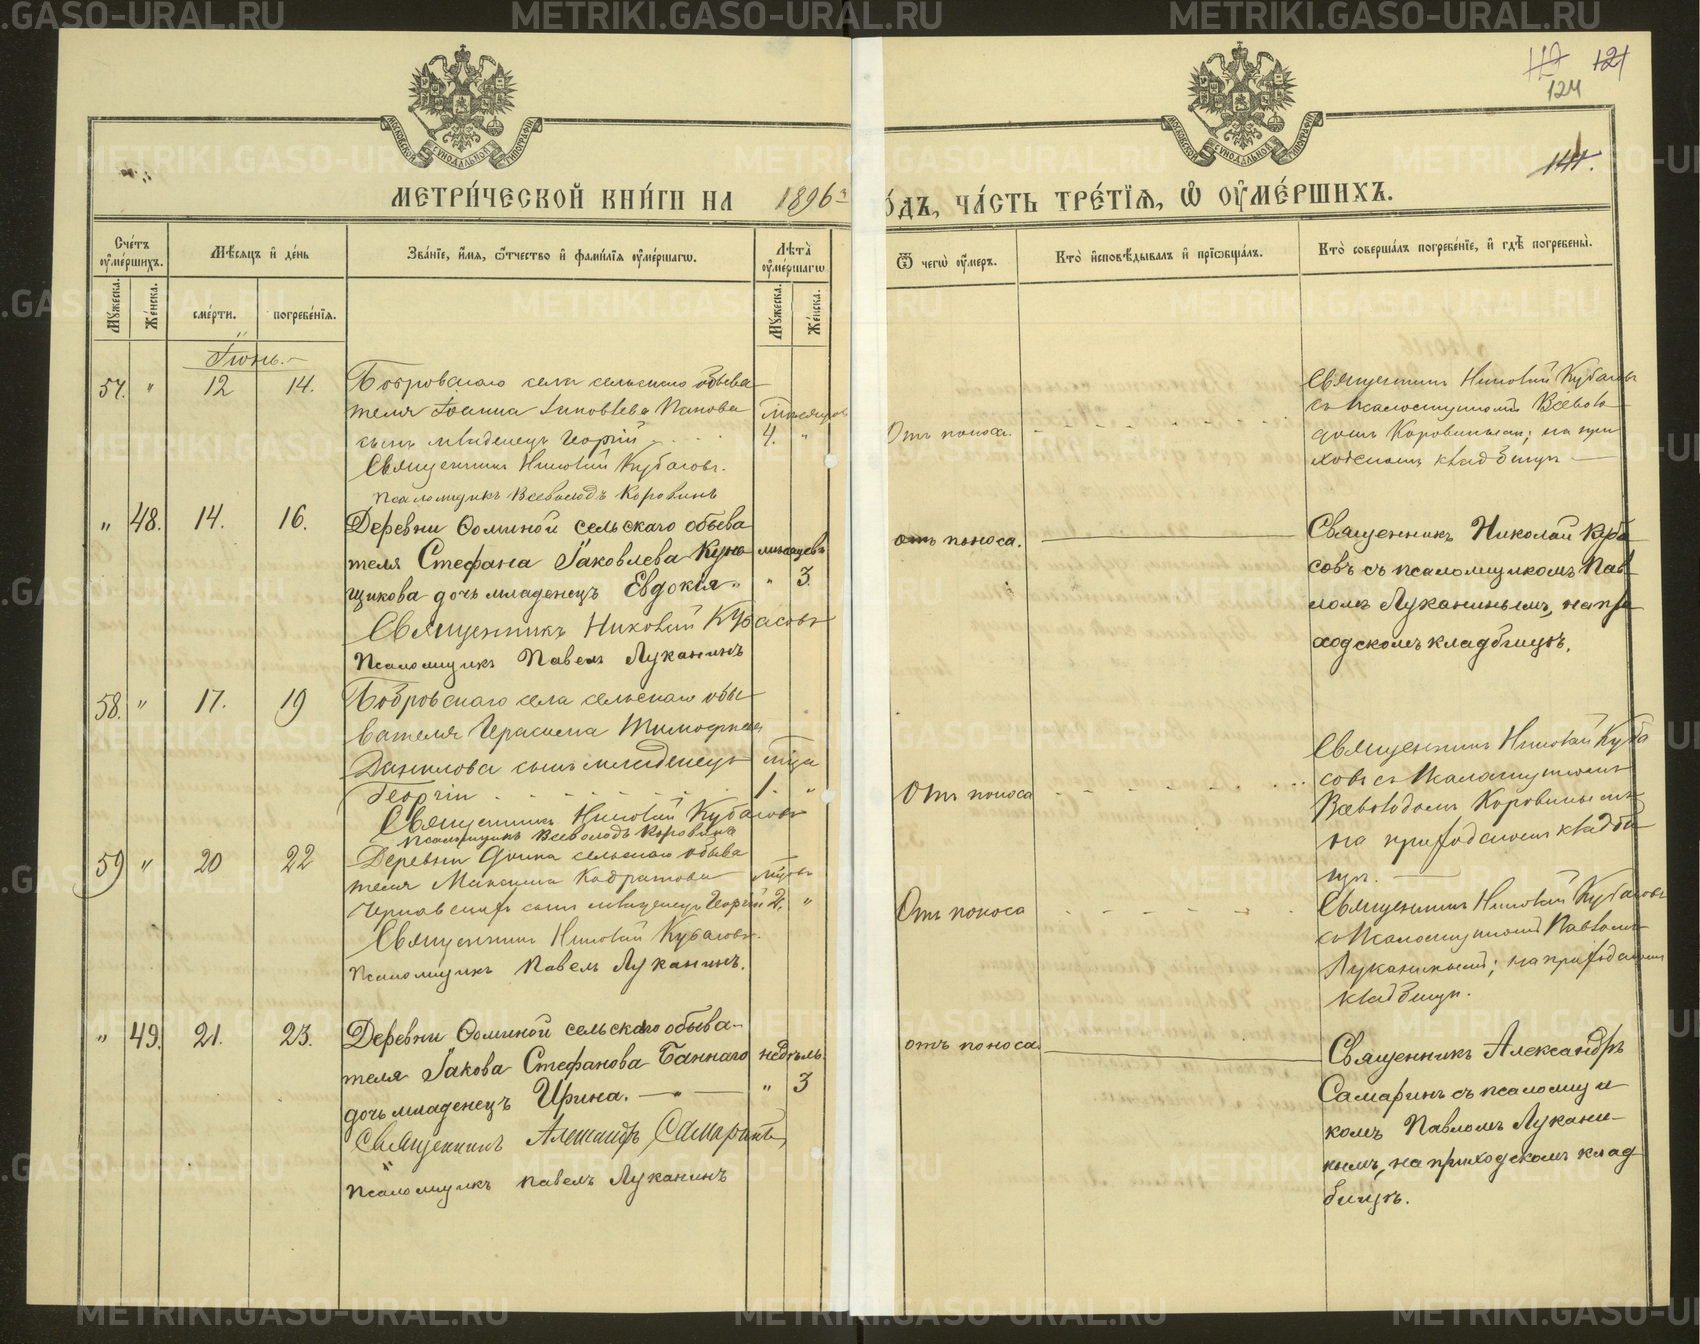 METRIKI.GASO-URAL.RU
117 121
124
141.
МОСКОВСКОЙ СѴНОДАЛЬНОЙ ТИПОГРАФІИ
МОСКОВСКОЙ СѴНОДАЛЬНОЙ ТИПОГРАФІИ
МЕТРИ́ЧЕСКОЙ КНИ́ГИ НА 1896 го́дъ, ЧА́СТЬ ТРЕ́ТІЯ, Ѽ ОУ҆МЕ́РШИХЪ.
Сче́тъ оу҆ме́ршихъ.
Мѣ́сяцъ и҆ де́нь
Зва́нїе, и҆́мя, ѻ҆́тчество и҆ фами́лїя оу҆ме́ршагѡ.
Лѣ́та оу҆ме́ршагѡ
Ѿ чегѡ̀ оу҆́меръ.
Кто̀ и҆сповѣ́дывалъ и҆ прїѡбща́лъ.
Кто̀ соверша́лъ погребе́нїе, и҆ гдѣ̀ погребены̀.
Мꙋ́жеска.
Же́нска.
сме́рти.
погребе́нїя.
Мꙋ́жеска.
Же́нска.
Іюнь.
57. " 12 14. Бобровскаго села сельскаго обыва
теля Іоанна Зиновьева Панова
Мѣсяцовъ
сынъ младенецъ Георгій
4. "
Священникъ Николай Кубасовъ.
Псаломщикъ Всеволодъ Коровинъ
Отъ поноса.
Священникъ Николай Кубасовъ
съ псаломщикомъ Всеволо
домъ Коровинымъ; на при
ходскомъ кладбищѣ
" 48. 14. 16. Деревни Соминой сельскаго обыва
теля Стефана Іаковлева Куна
мѣсяцевъ
щикова дочь младенецъ Евдокія
" 3.
Священникъ Николай Кубасовъ
Псаломщикъ Павелъ Луканинъ
отъ поноса.
Священникъ Николай Куба
совъ съ псаломщикомъ Пав
ломъ Луканинымъ, на при
ходскомъ кладбищѣ.
58. " 17. 19 Бобровскаго села сельскаго обы
вателя Герасима Тимофеева
Данилова сынъ младенецъ
года
Георгій
1. "
Священникъ Николай Кубасовъ
Псаломщикъ Всеволодъ Коровинъ
Отъ поноса
Священникъ Николай Куба
совъ съ псаломщикомъ
Всеволодомъ Коровинымъ
на приходскомъ кладби
щѣ.
59 " 20 22 Деревни сельскаго обыва
теля Максима Кодратова
Черновскихъ сынъ младенецъ Георгій 2. "
Священникъ Николай Кубасовъ.
Псаломщикъ Павелъ Луканинъ.
Отъ поноса
Священникъ Николай Кубасовъ
съ псаломщикомъ Павломъ
Луканинымъ; на приходскомъ
кладбищѣ.
" 49. 21. 23. Деревни Соминой сельскаго обыва-
теля Іакова Стефанова Баннаго
недѣль
дочь младенецъ Ирина.
" 3
Священникъ Александръ Самаринъ,
Псаломщикъ Павелъ Луканинъ
отъ поноса.
Священникъ Александръ
Самаринъ съ псаломщи
комъ Павломъ Лукани-
нымъ, на приходскомъ клад
бищѣ.